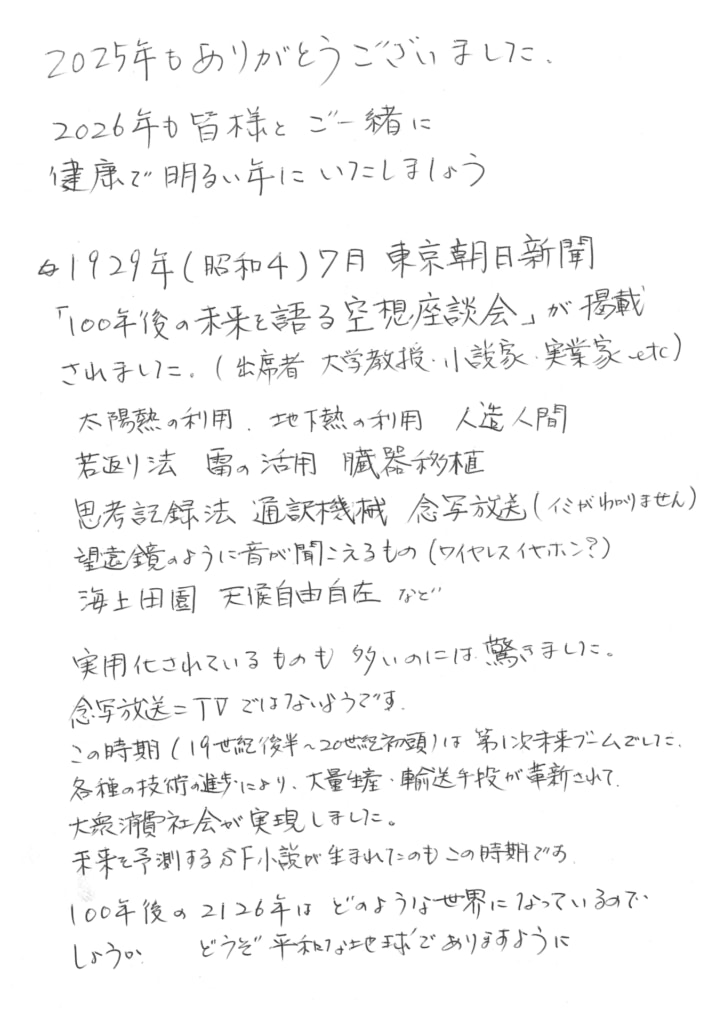 2025年もありがとうございました.
2026年も皆様とご一緒に
健康で明るい年にいたしましょう
1929年(昭和4)7月 東京朝日新聞
「100年後の未来を語る空想座談会」が掲載
されました.(出席者 大学教授・小説家・実業家 etc)
太陽熱の利用. 地下熱の利用 人造人間
若返り法 雷の活用 臓器移植
思考記録法 通訳機械 念写放送(イミがわかりません)
望遠鏡のように音が聞こえるもの(ワイヤレスイヤホン?)
海上田園 天候自由自在 など
実用化されているものも多いのには驚きました。
念写放送=TVではないようです.
この時期(19世紀後半~20世紀初頭)は第1次未来ブームでした.
各種の技術の進歩により、大量生産・輸送手段が革新されて.
大衆消費社会が実現しました。
未来を予測するSF小説が生まれたのもこの時期です
100年後の2126年はどのような世界になっているので
しょうか. どうぞ平和な地球でありますように